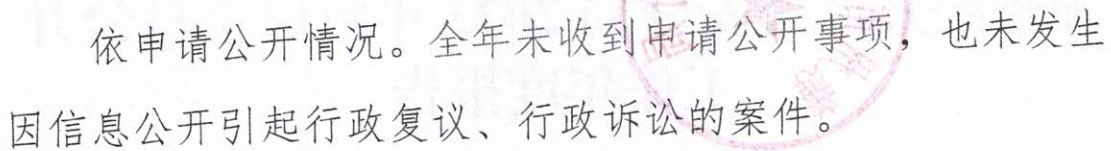 依申请公开情况。全年未收到申请公开事项，也未发生
因信息公开引起行政复议、行政诉讼的案件。